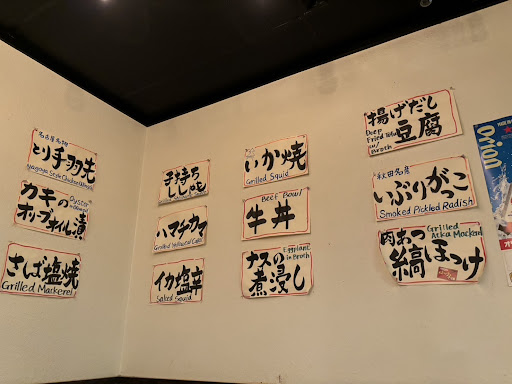 名古屋名物
とり手羽先
Nagoya Style Chicken Wings
カキの
オリーブオイル漬
Oyster
さんま塩焼
Grilled Mackerel
子持ち
ししゃも
ハマチカマ
Grilled Yellowtail Collar
イカ塩辛
Salted Squid
いか焼
Grilled Squid
Beef Bowl
牛丼
ナスの
煮浸し
Eggplant
in Broth
揚げだし
豆腐
Deep
Fried Tofu
w/ Broth
秋田名産
いぶりがっこ
Smoked Pickled Radish
肉あつ
縞ほっけ
Grilled
Atka Mackerel
Orion